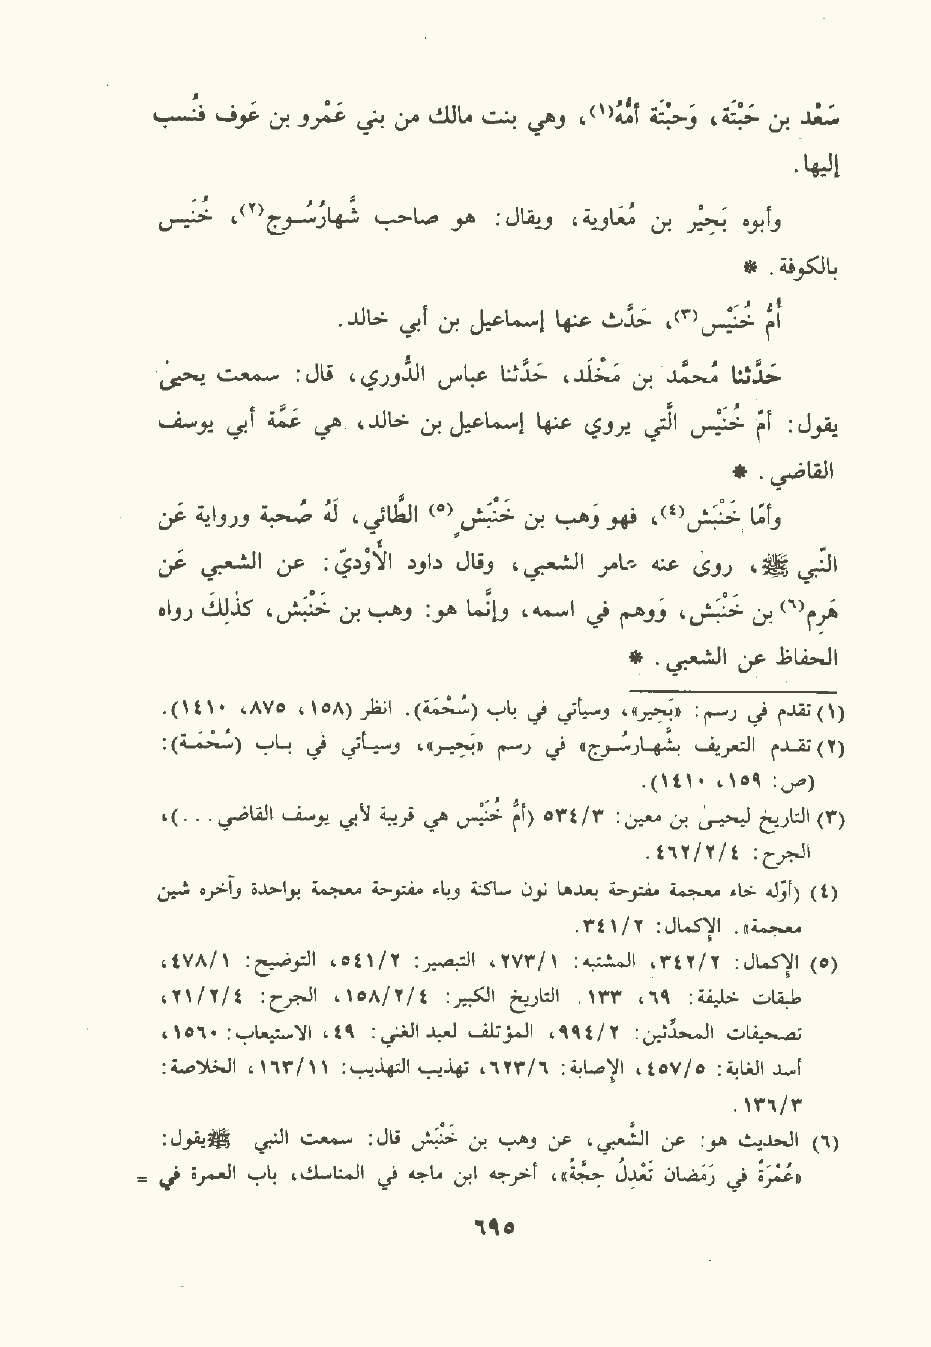 سَعْد بن حَبْتَة، وَحبْتَة أمُّهُ(١)، وهي بنت مالك من بني عَمْرو بن عَوف فنُسب
إليها.
وأبوه بَحِيْر بن مُعَاوية، ويقال: هو صاحب شَّهارْسُوج(٢)، خُنَيس
بالكوفة. *
أُمُّ خُنَيْس(٣)، حَدَّث عنها إسماعيل بن أبي خالد.
حَدَّثنا مُحمَّد بن مَخْلَد، حَدَّثنا عباس الدُّوري، قال: سمعت يحيىٰ
يقول: أمّ خُنَيْس الَّتي يروي عنها إسماعيل بن خالد، هي عَمَّة أبي يوسف
القاضي. *
وأمّا خَنْبَش(٤)، فهو وَهب بن خَنْبَش(٥) الطَّائي، لَهُ صُحبة ورواية عَن
النَّبي ﷺ، روىٰ عنه عامر الشعبي، وقال داود الأَوْديّ: عن الشعبي عَن
هَرِم(٦) بن خَنْبَش، ووهم في اسمه، وإنَّما هو: وهب بن خَنْبَش، كذلِكَ رواه
الحفاظ عن الشعبي. *
(١) تقدم في رسم: «بَحِير»، وسيأتي في باب (سُحْمَة). انظر (١٥٨، ٨٧٥، ١٤١٠).
(٢) تقدم التعريف بشَّهارسُوج» في رسم «بَحِير»، وسيأتي في باب (سُحْمَة):
(ص: ١٥٩، ١٤١٠).
(٣) التاريخ ليحيىٰ بن معين: ٥٣٤/٣ (أمُّ خُنَيْس هي قريبة لأبي يوسف القاضي...)،
الجرح: ٤٦٢/٢/٤.
(٤) (أوّله خاء معجمة مفتوحة بعدها نون ساكنة وباء مفتوحة معجمة بواحدة وآخره شين
معجمة». الإكمال: ٣٤١/٢.
(٥) الإكمال: ٣٤٢/٢، المشتبه: ٢٧٣/١، التبصير: ٥٤١/٢، التوضيح: ٤٧٨/١،
طبقات خليفة: ٦٩، ١٣٣. التاريخ الكبير: ١٥٨/٢/٤، الجرح: ٢١/٢/٤،
تصحيفات المحدّثين: ٩٩٤/٢، المؤتلف لعبد الغني: ٤٩، الاستيعاب: ١٥٦٠،
أسد الغابة: ٤٥٧/٥، الإصابة: ٦٢٣/٦، تهذيب التهذيب: ١٦٣/١١، الخلاصة:
١٣٦/٣.
(٦) الحديث هو: عن الشَّعبي، عن وهب بن خَنْبَش قال: سمعت النبي ﷺ يقول:
«عُمْرَةٌ في رَمَضان تَعْدِلُ حِجَّةً»، أخرجه ابن ماجه في المناسك، باب العمرة في =
٦٩٥